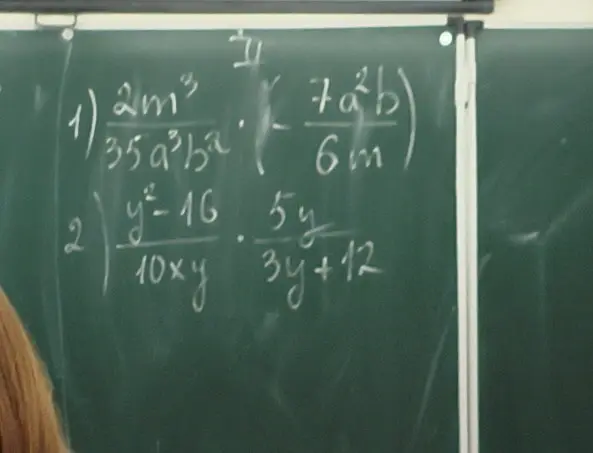 II
1) \frac{2m^3}{35a^3b^2} \cdot \left(-\frac{7a^2b}{6m}\right)
2) \frac{y^2-16}{10xy} \cdot \frac{5y}{3y+12}